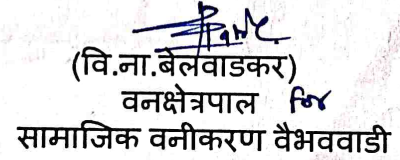 (वि.ना.बेलवाडकर)
वनक्षेत्रपाल for
सामाजिक वनीकरण वैभववाडी